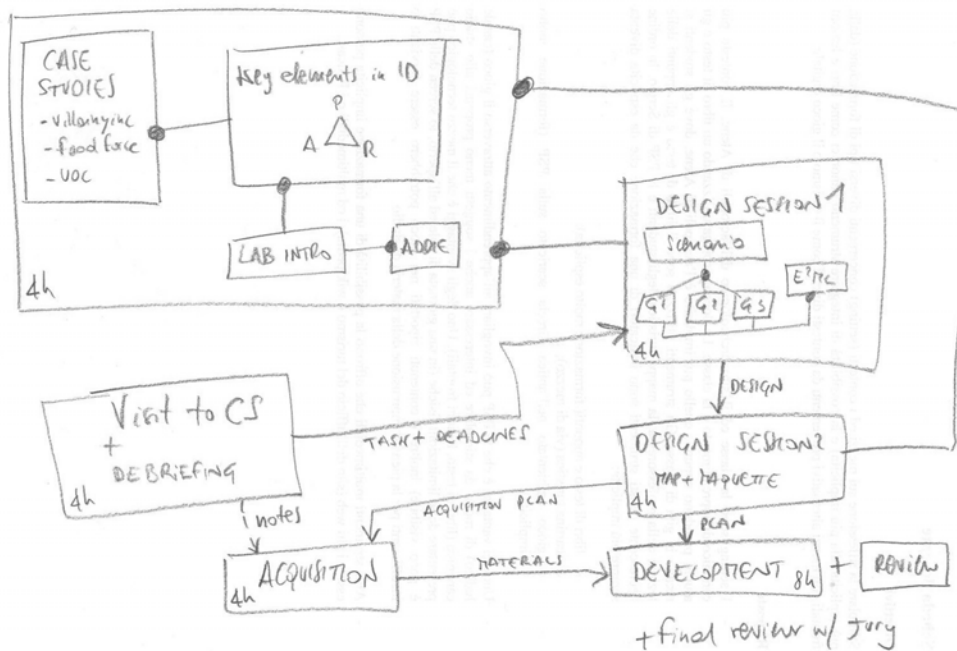 CASE
STUDIES
- Villainy inc
- food force
- VOC
Key elements in ID
P
A
R
LAB INTRO
ADDIE
4h
DESIGN SESSION 1
Scenario
G1
G2
G3
E²ML
4h
DESIGN
Visit to CS
+
DEBRIEFING
4h
TASK + DEADLINES
DESIGN SESSION 2
MAP + MAQUETTE
4h
notes
ACQUISITION PLAN
PLAN
ACQUISITION
4h
MATERIALS
DEVELOPMENT 8h
+
REVIEW
+ final review w/ Jury